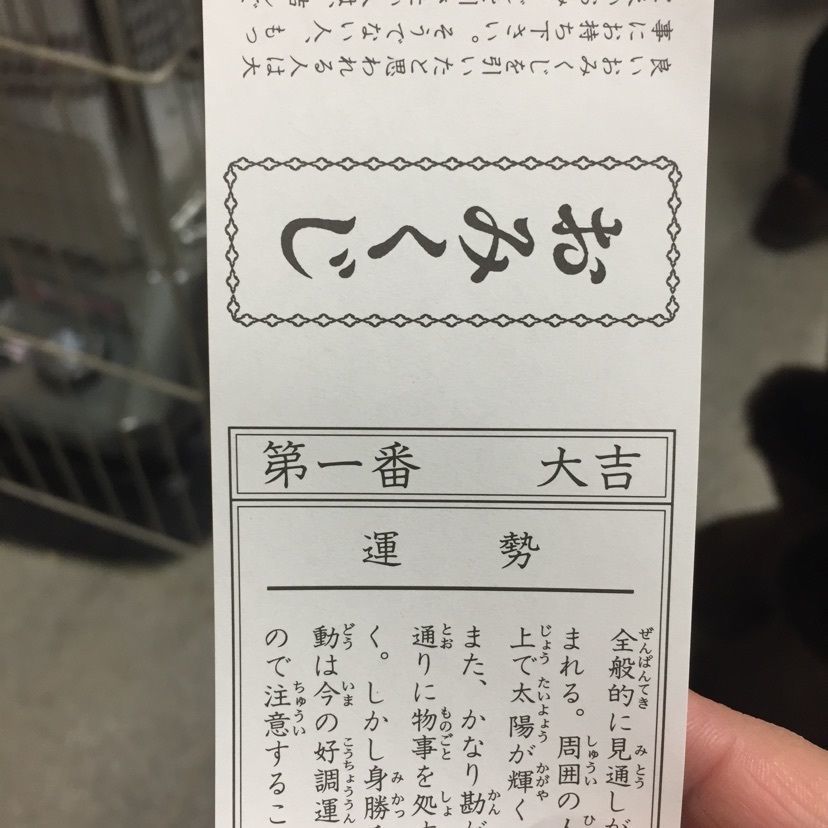 おみくじ
良いおみくじを引いたと思われる人は大
事にお持ち下さい。そうでない人、もっ
第一番 大吉
運勢
全般的に見通しが
まれる。周囲の
上で太陽が輝く
また、かなり勘が
通りに物事を処
く。しかし身勝
動は今の好調運
ので注意するこ